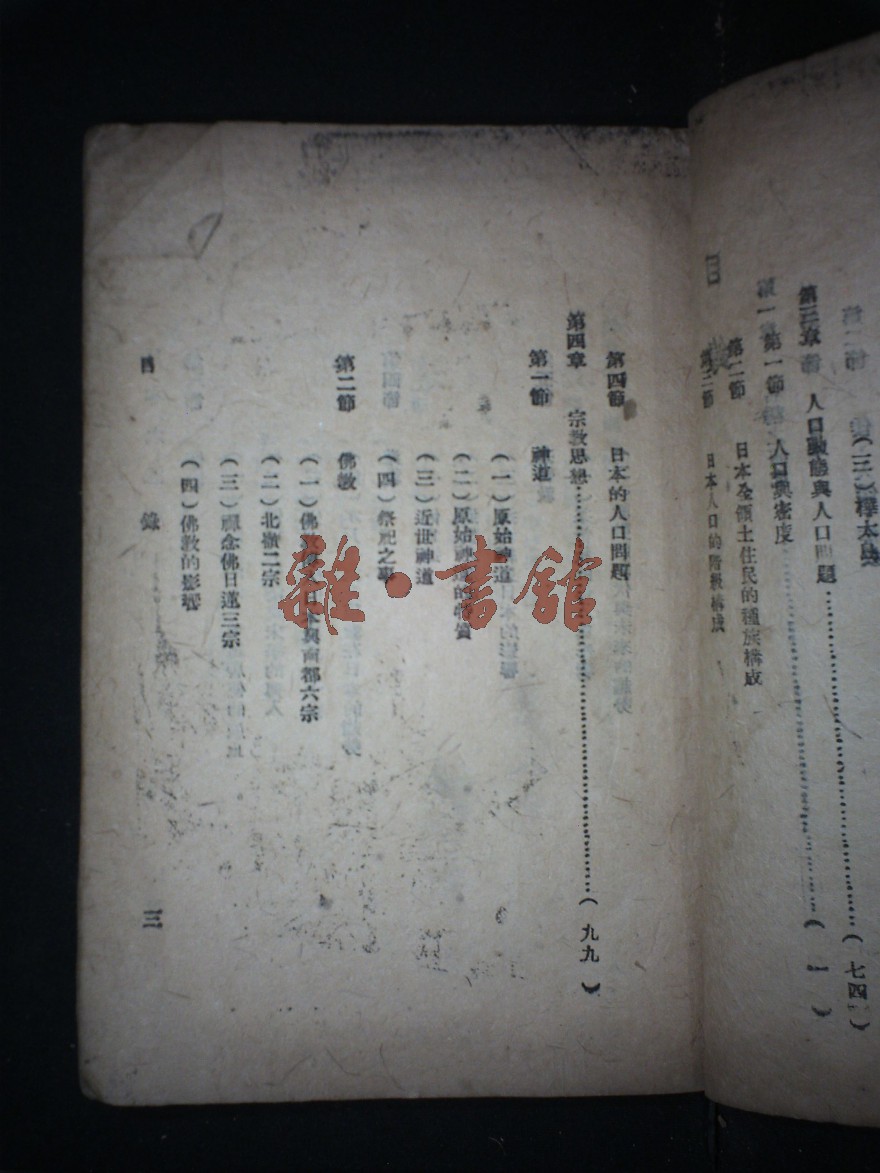 (三)樺太島
(七四)
第三章 人口動態與人口問題
第一節 人口與密度
第二節 日本全領土住民的種族構成
第三節 日本人口的階級構成
第四節 日本的人口問題
第四章 宗教思想(九九)
第一節 神道
(一)原始神道
(二)原始神道的特質
(三)近世神道
(四)祭祀之事
第二節 佛教
(一)佛教 日本與南都六宗
(二)北嶺二宗
(三)禪念佛日蓮三宗
(四)佛教的影響
目 錄 三
雜·書館